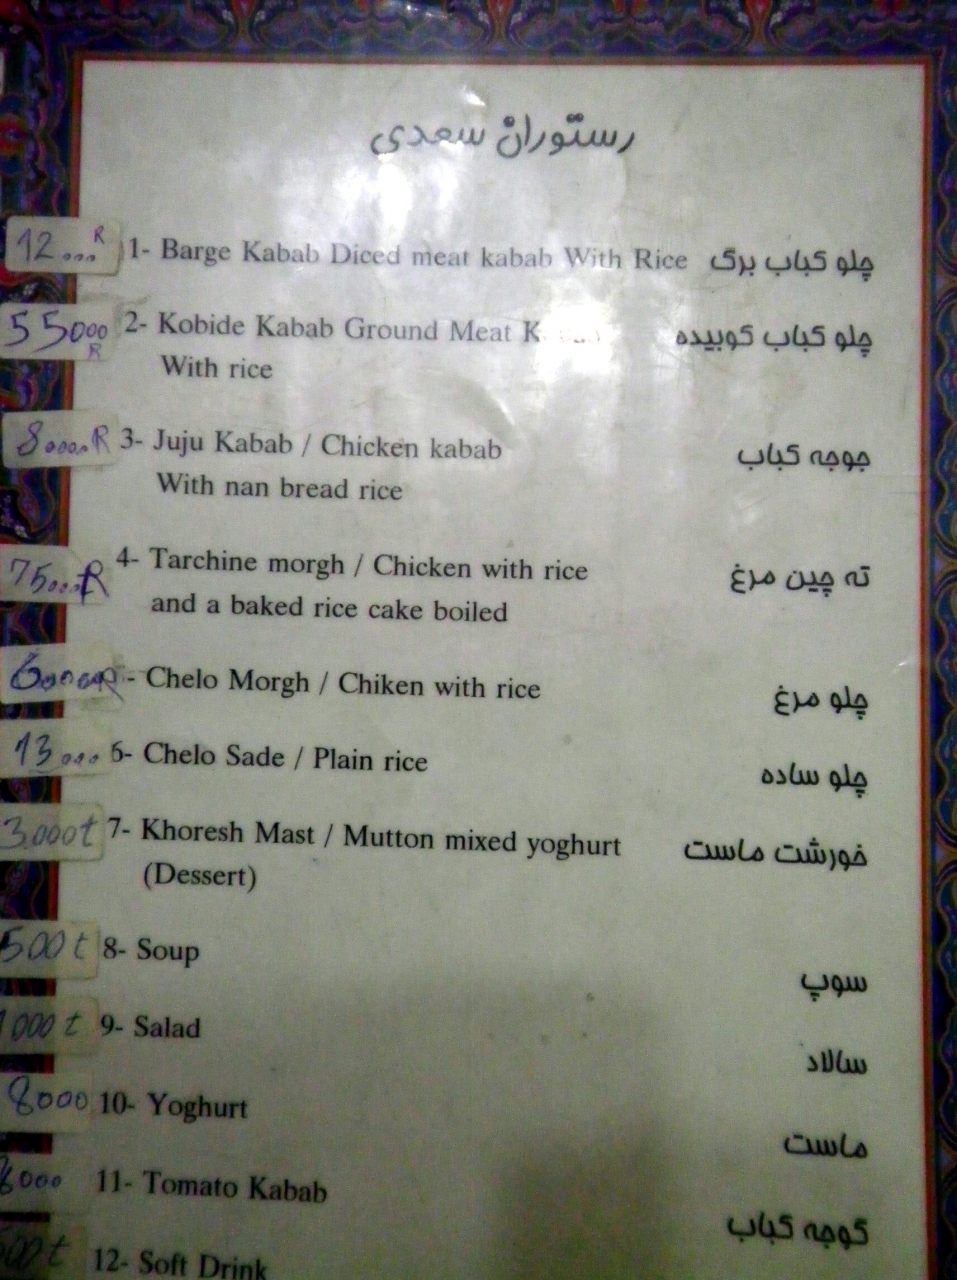 رستوران سعدی
12000 R 1- Barge Kabab Diced meat kabab With Rice چلو کباب برگ
55000 R 2- Kobide Kabab Ground Meat چلو کباب کوبیده
With rice
80000 R 3- Juju Kabab / Chicken kabab جوجه کباب
With nan bread rice
75000 R 4- Tarchine morgh / Chicken with rice ته چین مرغ
and a baked rice cake boiled
60000 R - Chelo Morgh / Chiken with rice چلو مرغ
13000 6- Chelo Sade / Plain rice چلو ساده
3.000t 7- Khoresh Mast / Mutton mixed yoghurt خورشت ماست
(Dessert)
500 t 8- Soup سوپ
1000 t 9- Salad سالاد
8000 10- Yoghurt ماست
11- Tomato Kabab گوجه کباب
12- Soft Drink